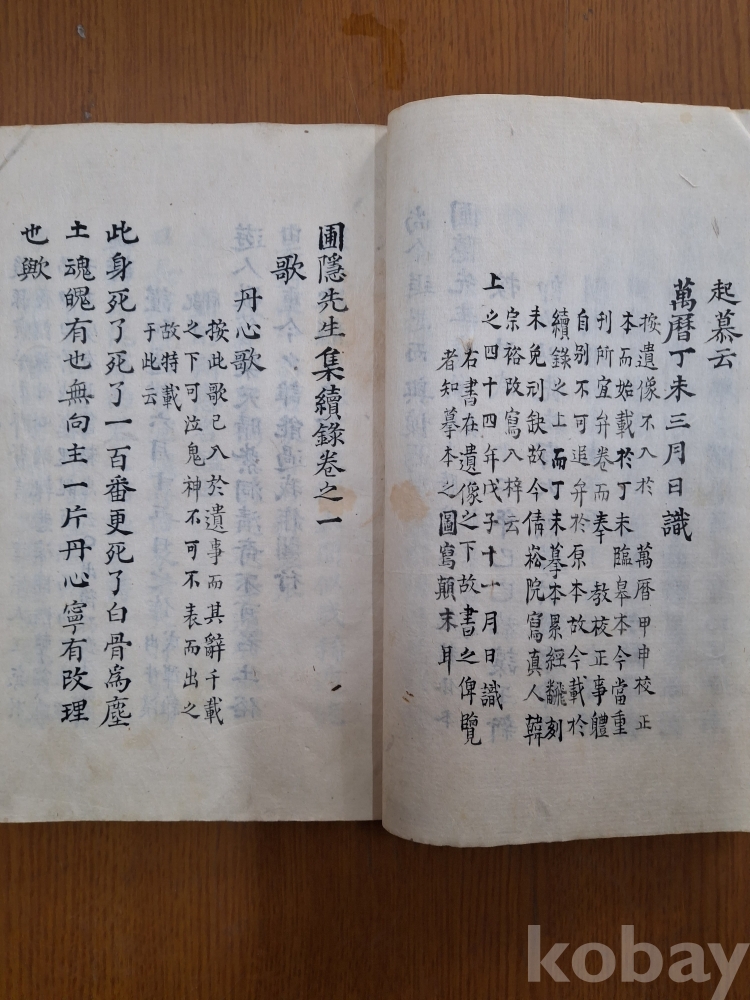 起慕云
萬曆丁未三月日識
按遺像不入於 萬曆甲申校正
本而始載於丁未臨皐本今當重
刊所宜弁卷而奉 教校正事體
自別不可追弁於原本故今載於
續錄之上而丁未摹本累經翻刻
未免刓缺故今倩崧院寫真人韓
宗裕改寫入梓云
上之四十四年戊子十十月日識
右書在遺像之下故書之俾覽
者知摹本之圖寫顛末耳
圃隱先生集續錄卷之一
歌
丹心歌
按此歌已入於遺事而其辭千載
之下可泣鬼神不可不表而出之
故特載
于此云
此身死了死了一百番更死了白骨爲塵
土魂魄有也無向主一片丹心寧有改理
也歟
kobay